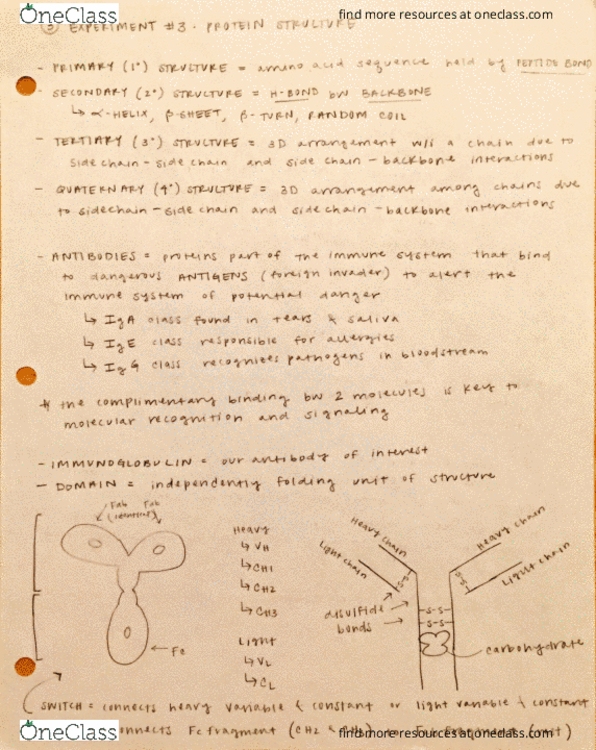 OneClass
find more resources at oneclass.com
③ EXPERIMENT #3 - PROTEIN STRUCTURE
- PRIMARY (1°) STRUCTURE = amino acid sequence held by PEPTIDE BOND
- SECONDARY (2°) STRUCTURE = H-BOND bw BACKBONE
↳ α-HELIX, β-SHEET, β-TURN, RANDOM COIL
- TERTIARY (3°) STRUCTURE = 3D arrangement w/i a chain due to
side chain-side chain and side chain-backbone interactions
- QUATERNARY (4°) STRUCTURE = 3D arrangement among chains due
to sidechain-side chain and side chain-backbone interactions
- ANTIBODIES = proteins part of the immune system that bind
to dangerous ANTIGENS (foreign invader) to alert the
immune system of potential danger
↳ IgA class found in tears & saliva
↳ IgE class responsible for allergies
↳ IgG class recognizes pathogens in bloodstream
* the complimentary binding bw 2 molecules is key to
molecular recognition and signaling
- IMMUNOGLOBULIN = our antibody of interest
- DOMAIN = independently folding unit of structure
Fab Fab
(identical)
Fc
Heavy
↳ VH
↳ CH1
↳ CH2
↳ CH3
Light
↳ VL
↳ CL
Heavy chain
Light chain
Heavy chain
Light chain
S-S
S-S
disulfide
bonds
-S-S-
-S-S-
carbohydrate
SWITCH = connects heavy variable & constant or light variable & constant
OneClass
connects Fc fragment (CH2 &
find more resources at oneclass.com